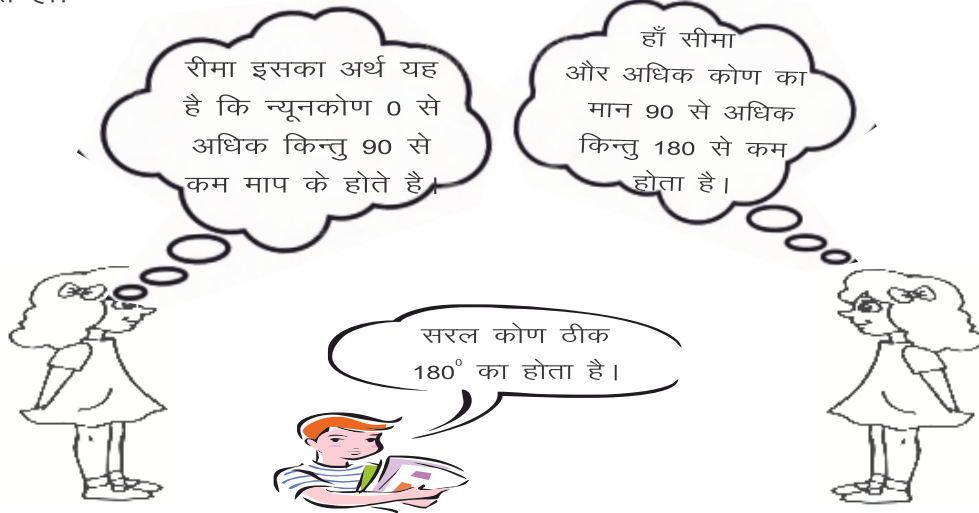 रीमा इसका अर्थ यह
है कि न्यूनकोण 0 से
अधिक किन्तु 90 से
कम माप के होते है।
हाँ सीमा
और अधिक कोण का
मान 90 से अधिक
किन्तु 180 से कम
होता है।
सरल कोण ठीक
180° का होता है।